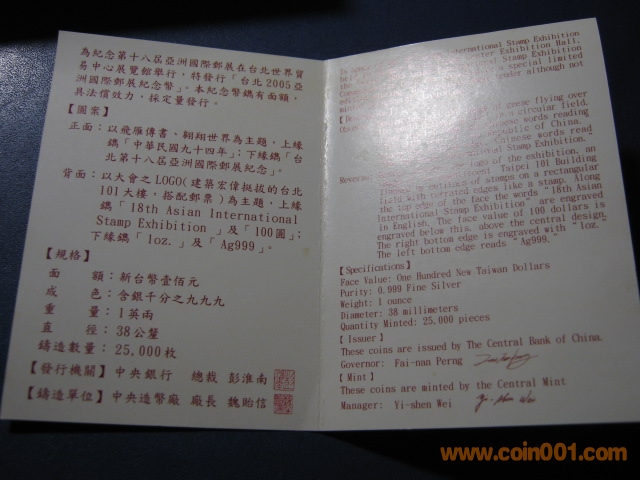 為紀念第十八屆亞洲國際郵展在台北世界貿
易中心展覽館舉行，特發行「台北2005亞
洲國際郵展紀念幣」。本紀念幣鐫有面額，
具法償效力，採定量發行。
【圖案】
正面：以飛雁傳書、翱翔世界為主題，上緣
鐫「中華民國九十四年」；下緣鐫「台
北第十八屆亞洲國際郵展紀念」。
背面：以大會之LOGO(建築宏偉挺拔的台北
101大樓，搭配郵票）為主題，上緣
鐫「18th Asian International
Stamp Exhibition」及「100圓」；
下緣鐫「1oz.」及「Ag999」。
【規格】
面 額：新台幣壹佰元
成 色：含銀千分之九九九
重 量：1英兩
直 徑：38公釐
鑄造數量：25,000枚
【發行機關】中央銀行 總裁 彭淮南
【鑄造單位】中央造幣廠 廠長 魏貽信
International Stamp Exhibition
Center Exhibition Hall,
Stamp Exhibition
a special limited
although not
geese flying over
circular field.
Chinese words reading
Republic of China.
Chinese words read
Stamp Exhibition.
logo of the exhibition, an
Taipei 101 Building
outlines of stamps on a rectangular
field with serrated edges like a stamp. Along
the top edge of the face the words "18th Asian
International Stamp Exhibition" are engraved
in English. The face value of 100 dollars is
engraved below this, above the central design.
The right bottom edge is engraved with "1oz."
The left bottom edge reads "Ag999."
【Specifications】
Face Value: One Hundred New Taiwan Dollars
Purity: 0.999 Fine Silver
Weight: 1 ounce
Diameter: 38 millimeters
Quantity Minted: 25,000 pieces
【Issuer】
These coins are issued by The Central Bank of China.
Governor: Fai-nan Perng
【Mint】
These coins are minted by the Central Mint
Manager: Yi-shen Wei
www.coin001.com